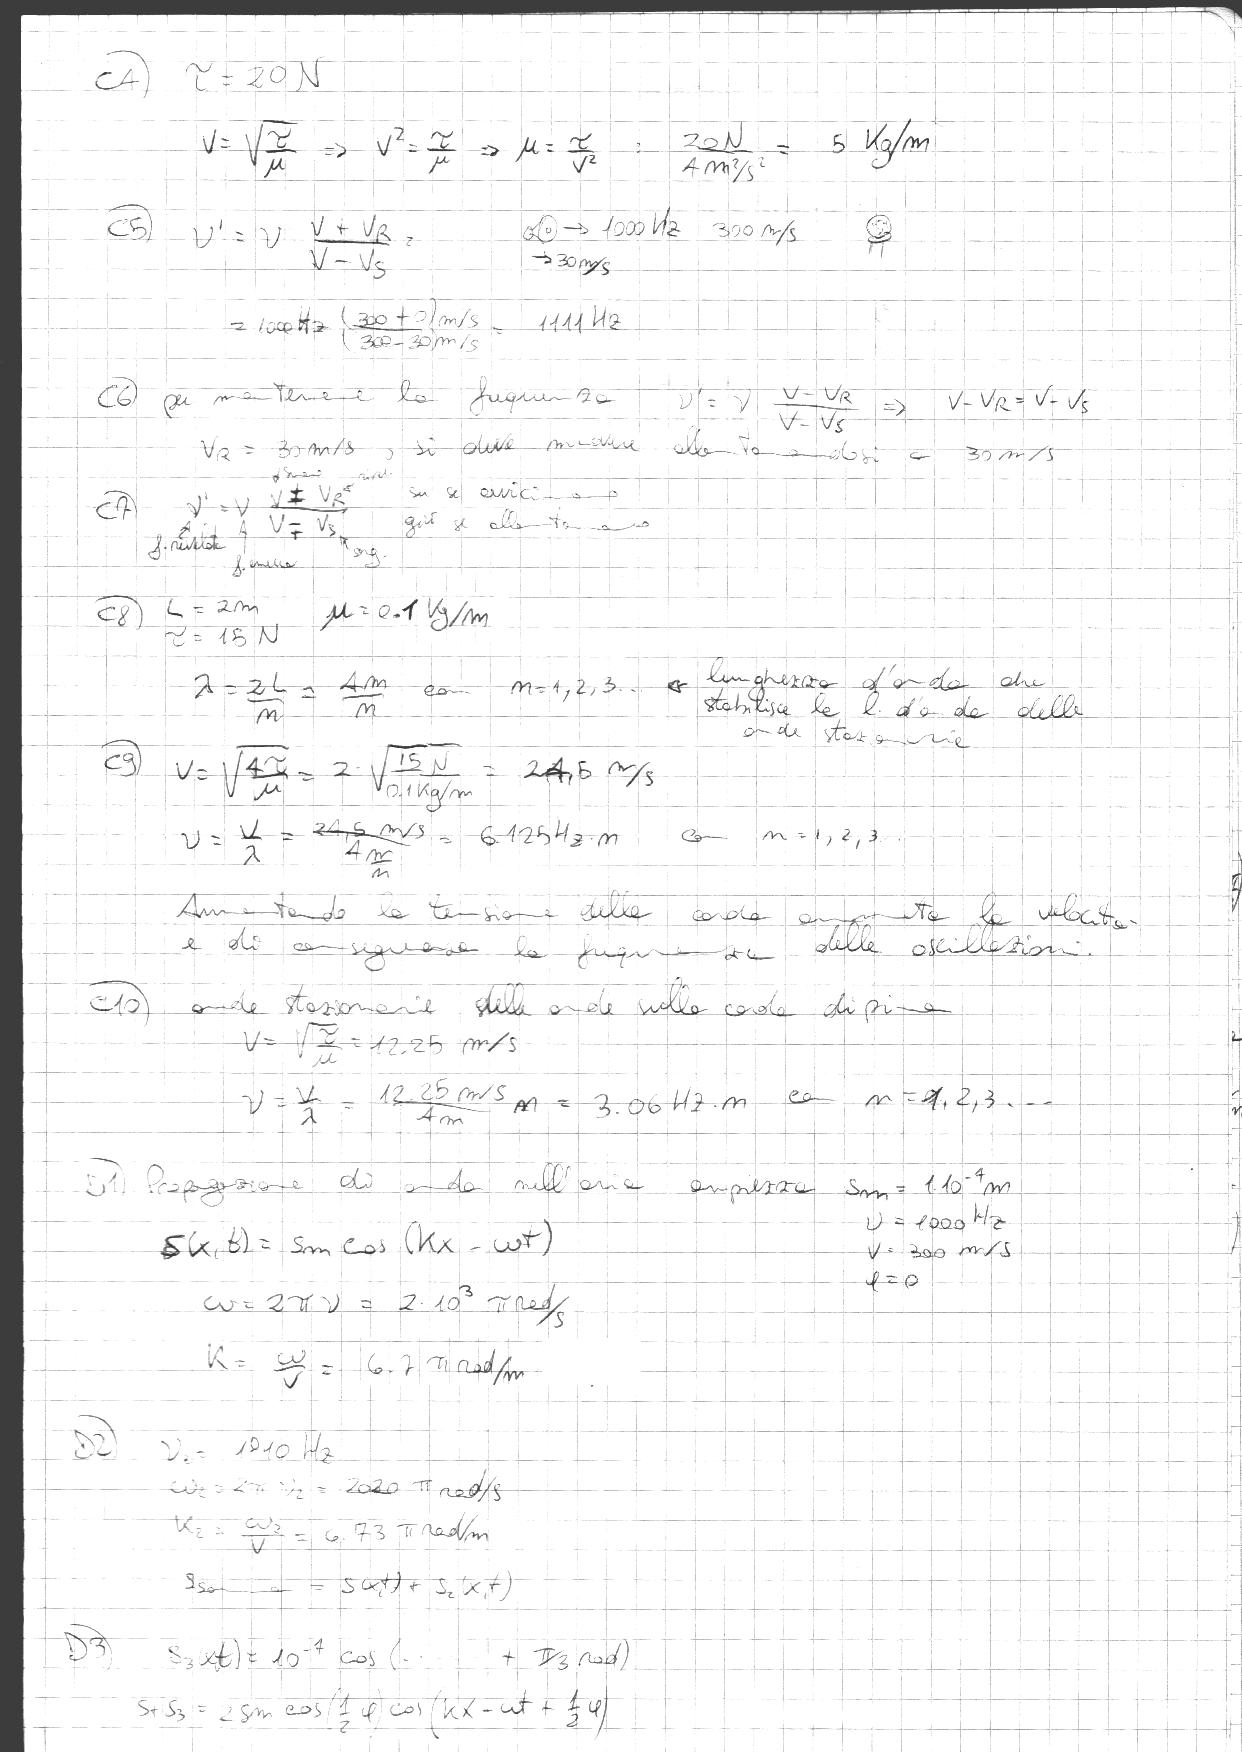 C4) τ = 20N
V = √(τ/μ) ⇒ V² = τ/μ ⇒ μ = τ/V² : 20N / 4 m²/s² = 5 Kg/m
C5) ν' = ν (V + V_R)/(V - V_S) = → 1000 Hz 300 m/s
→ 30 m/s
= 1000 Hz (300 + 0) m/s / (300 - 30) m/s = 1111 Hz
C6) per mantenere la frequenza ν' = ν (V - V_R)/(V - V_S) ⇒ V - V_R = V - V_S
V_R = 30 m/s, si deve muovere allontanandosi a 30 m/s
C7) ν' = ν (V ± V_R)/(V ∓ V_S) su se avvicinano
giù se allontanano
f. rivelata f. emessa sorg.
C8) L = 2m μ = 0.1 Kg/m
τ = 15 N
λ = 2L/n = 4m/n con n = 1, 2, 3... ← lunghezza d'onda che
stabilisce la l. d'onda delle
onde stazionarie
C9) V = √(4τ/μ) = 2·√(15 N / 0,1 Kg/m) = 24,5 m/s
ν = V/λ = 24,5 m/s / (4 m/n) = 6.125 Hz·n con n = 1, 2, 3...
Aumentando la tensione della corda aumenta la velocità
e di conseguenza la frequenza delle oscillazioni.
C10) onde stazionarie delle onde sulla corda di prima
V = √(τ/μ) = 12.25 m/s
ν = V/λ = 12.25 m/s / 4m n = 3.06 Hz·n con n = 1, 2, 3....
D1) Propagazione di onda nell'aria ampiezza sm = 1·10⁻⁴ m
ν = 1000 Hz
S(x,t) = sm cos (Kx - ωt) V = 300 m/s
φ = 0
ω = 2πν = 2·10³ π rad/s
K = ω/V = 6.7 π rad/m
D2) ν₂ = 1010 Hz
ω₂ = 2π ν₂ = 2020 π rad/s
K₂ = ω₂/V = 6.73 π rad/m
= s(x,t) + s₂(x,t)
D3) s₃(x,t) = 10⁻⁴ cos (... + π/3 rad)
s+s₃ = 2 sm cos(½ φ) cos(Kx - ωt + ½ φ)